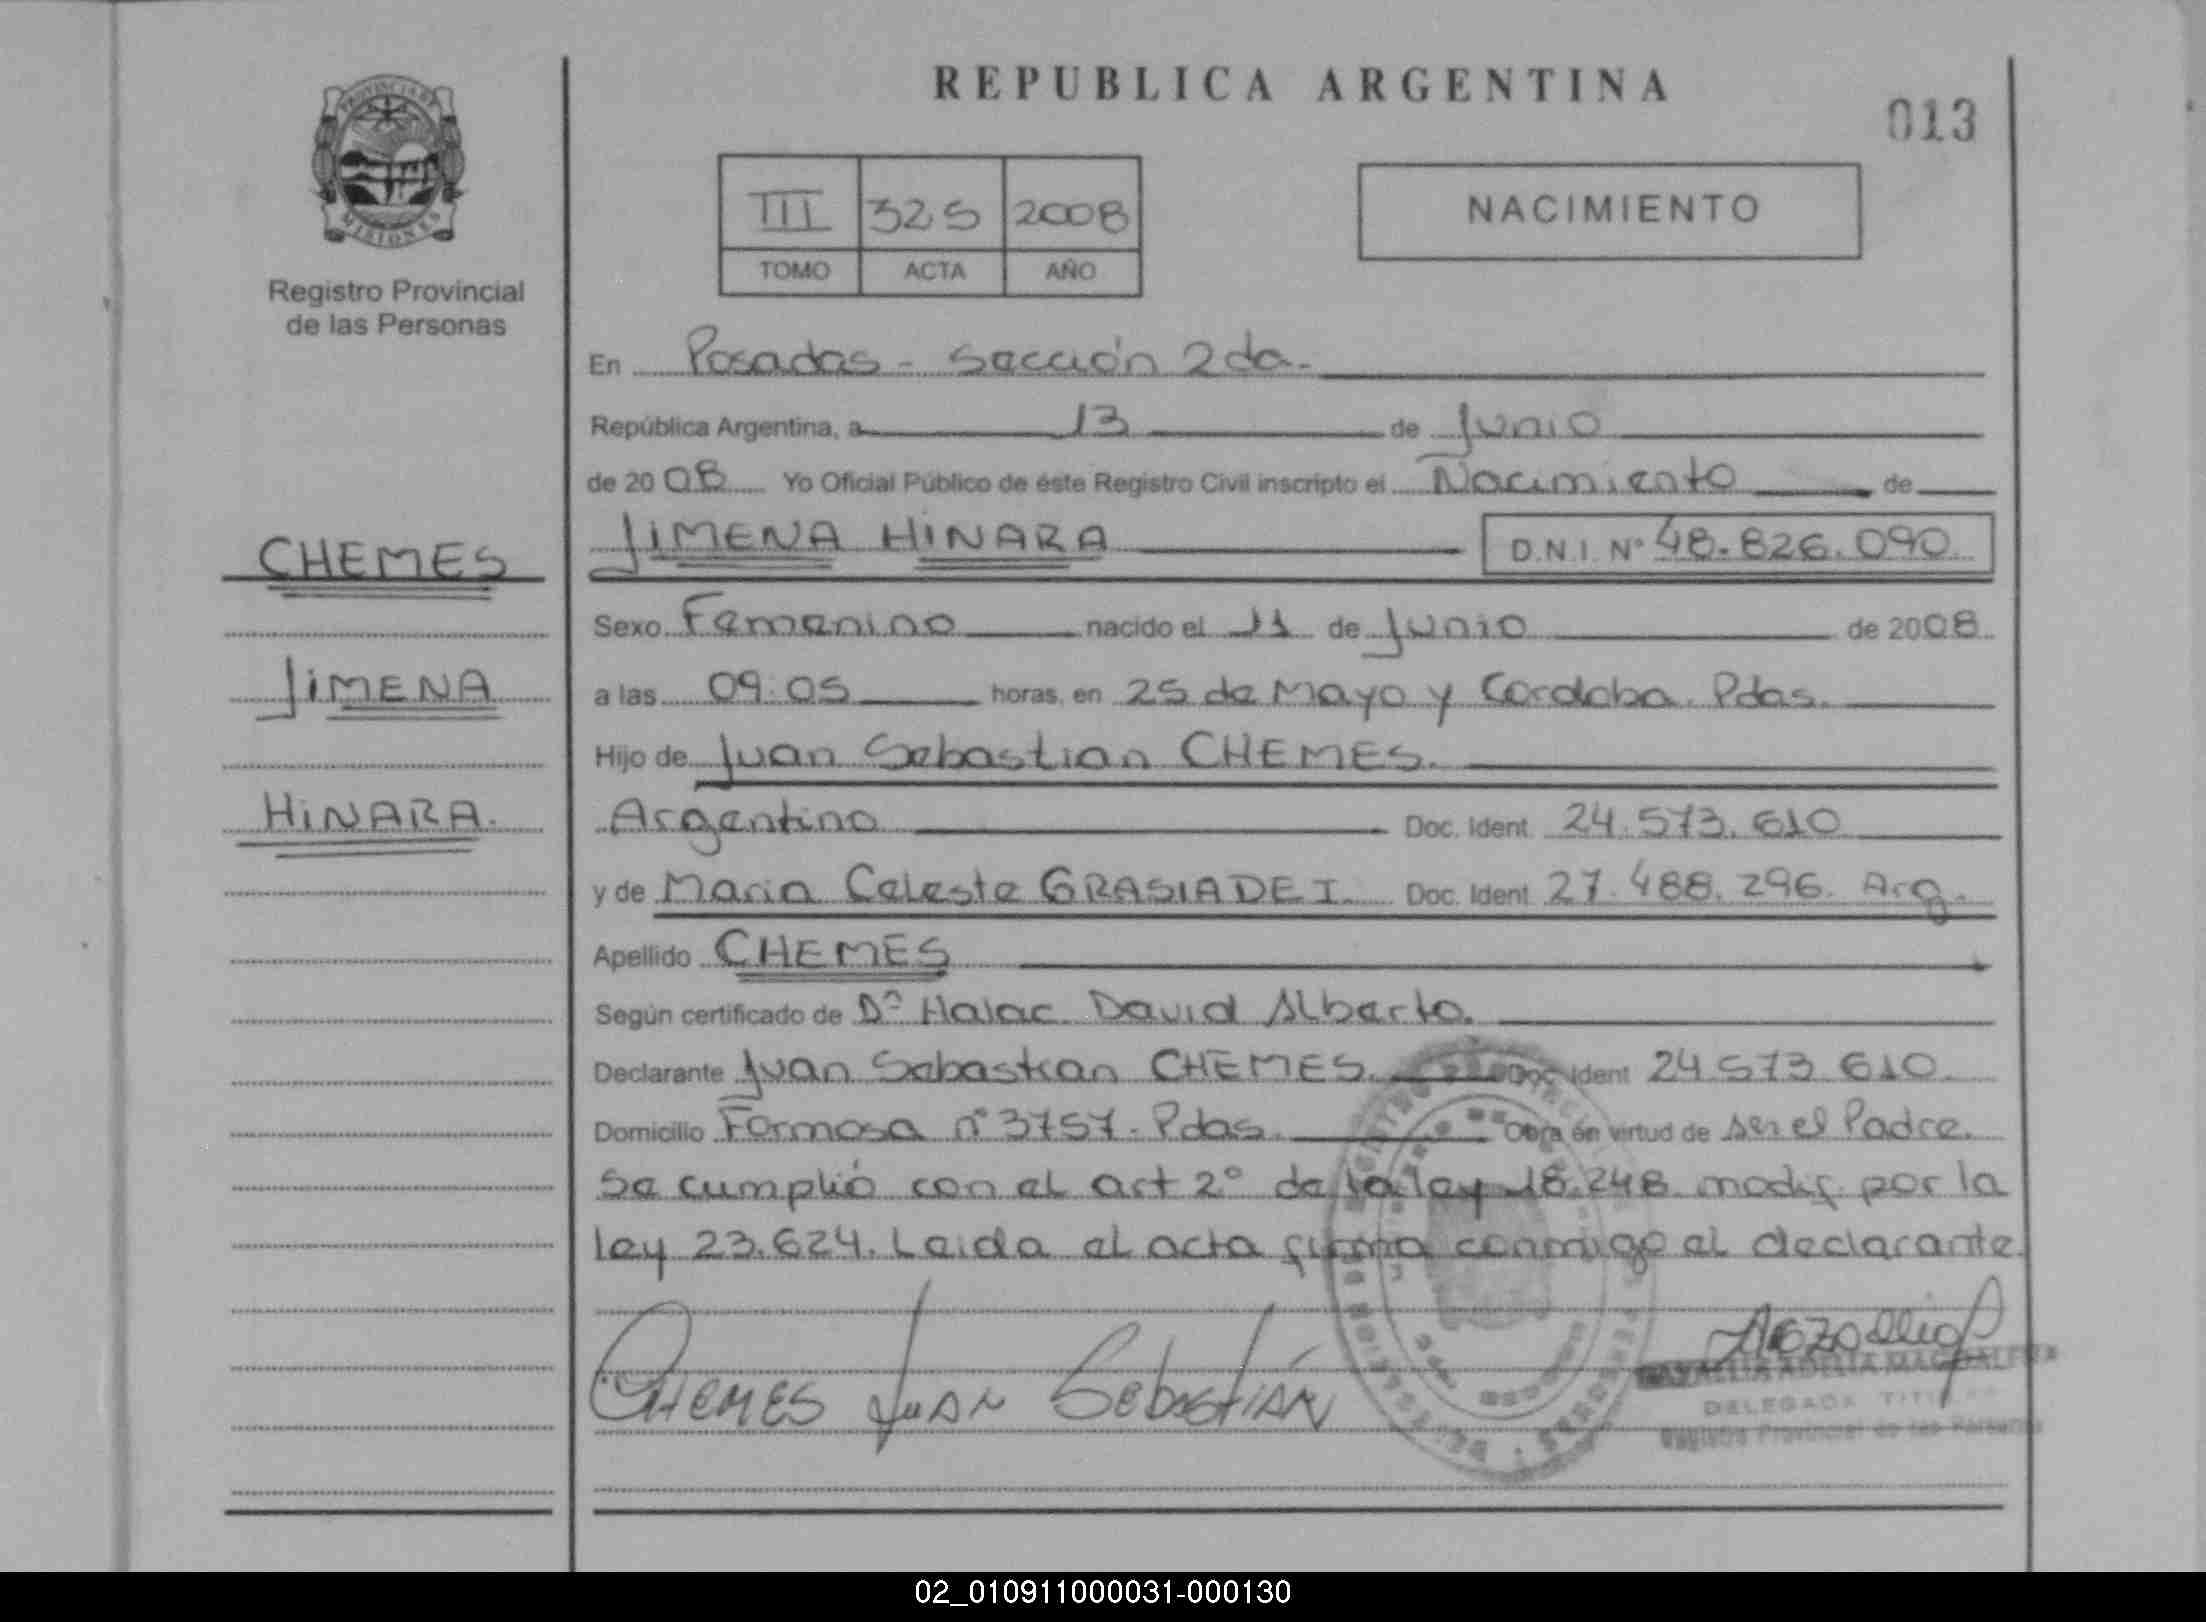 REPUBLICA ARGENTINA
013
PROVINCIA DE
MISIONES
Registro Provincial
de las Personas
III 325 2008
TOMO ACTA AÑO
NACIMIENTO
En Posadas - Sección 2da.
República Argentina, a 13 de Junio
de 2008 Yo Oficial Público de éste Registro Civil inscripto el Nacimiento de
CHEMES
JIMENA
HINARA.
JIMENA HINARA D.N.I. Nº 48.826.090
Sexo Femenino nacido el 11 de Junio de 2008
a las 09:05 horas, en 25 de Mayo y Cordoba. Pdas.
Hijo de Juan Sebastian CHEMES.
Argentino Doc. Ident 24.573.610
y de Maria Celeste GRASIADEI. Doc. Ident 27.488.296. Arg.
Apellido CHEMES
Según certificado de Dº Halac David Alberto.
Declarante Juan Sebastian CHEMES. Doc. Ident 24.573.610.
Domicilio Formosa nº 3757. Pdas. Obra en virtud de ser el Padre.
Se cumplió con el art 2º de la ley 18.248 modif. por la
ley 23.624. Leida el acta firma conmigo el declarante.
CHEMES JUAN SEBASTIÁN
ADELIA MAGDALENA
DELEGADA TITULAR
Registro Provincial de las Personas
02_010911000031-000130